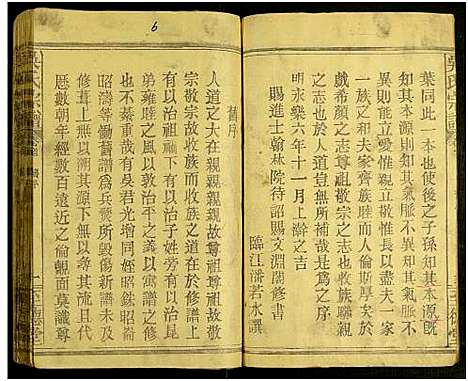 6
葉同此一本使後之子孫知其本源旣
知其本源則知其氣脈不異知其氣脈不
異則能立愛惟親立敬惟長親睦
一族之和夫家齊族睦而人倫斯厚矣
戲希顔之志尊祖敬宗之志也收族聯親
之志也於人道豈無所補哉是為之序
明永樂六年十一月上澣之吉
賜進士翰林院待詔賜文淵閣修書
臨江潘若水譔
舊序
人道之大在親親親親故尊祖尊祖故
宗敬宗故收族而收族之道在於修譜上
有以治祖禰下有以治子姓旁有以治昆
弟雍睦之風以敦治平之義以著譜之所
不綦重哉故有吳君光增同姪昭銤昭崙
昭濤等慟舊譜為兵燹所毀傷新譜未及
修葺上無以溯其源下無以尋其流且代
歷數朝年經數百遠近之倫覿面莫識尊
吳氏宗譜
三德堂